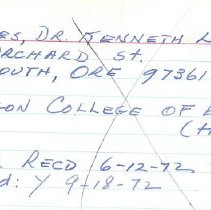 ES, DR. KENNETH L
ORCHARD St.
OUTH, ORE 97361
ON COLLEGE OF
RECD 6-12-72
d: Y 9-18-72